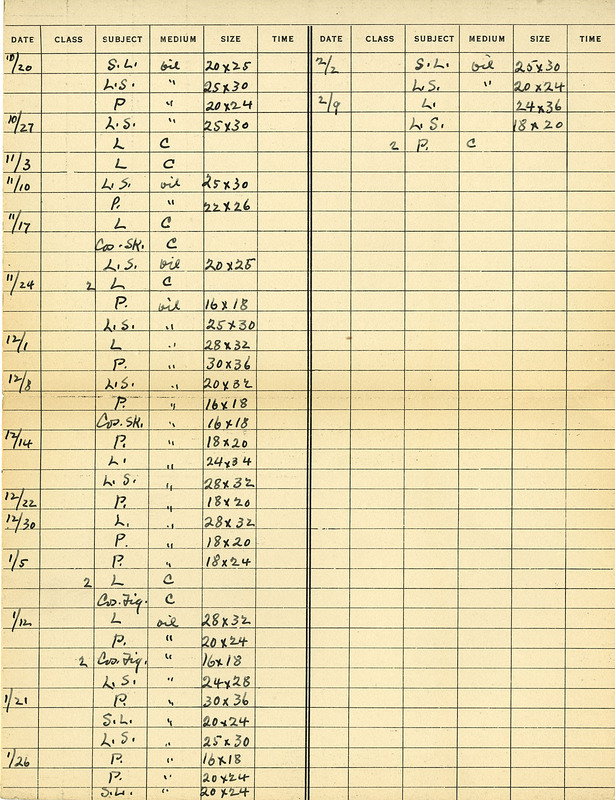 DATE CLASS SUBJECT MEDIUM SIZE TIME
10/20 S.L. oil 20x25
L.S. " 25x30
P " 20x24
10/27 L.S. " 25x30
L C
11/3 L C
11/10 L.S. oil 25x30
P. " 22x26
11/17 L C
Cos.Sk. C
L.S. oil 20x25
11/24 2 L C
P. oil 16x18
L.S. " 25x30
12/1 L " 28x32
P. " 30x36
12/8 L.S. " 20x32
P. " 16x18
Cos.Sk. " 16x18
12/14 P. " 18x20
L. " 24x34
L.S. " 28x32
12/22 P. " 18x20
12/30 L. " 28x32
P. " 18x20
1/5 P. " 18x24
2 L C
Cos.Fig. C
1/12 L oil 28x32
P. " 20x24
2 Cos.Fig. " 16x18
L.S. " 24x28
1/21 P. " 30x36
S.L. " 20x24
L.S. " 25x30
1/26 P. " 16x18
P. " 20x24
S.L. " 20x24
DATE CLASS SUBJECT MEDIUM SIZE TIME
2/2 S.L. oil 25x30
L.S. " 20x24
2/9 L. 24x36
L.S. 18x20
2 P. C